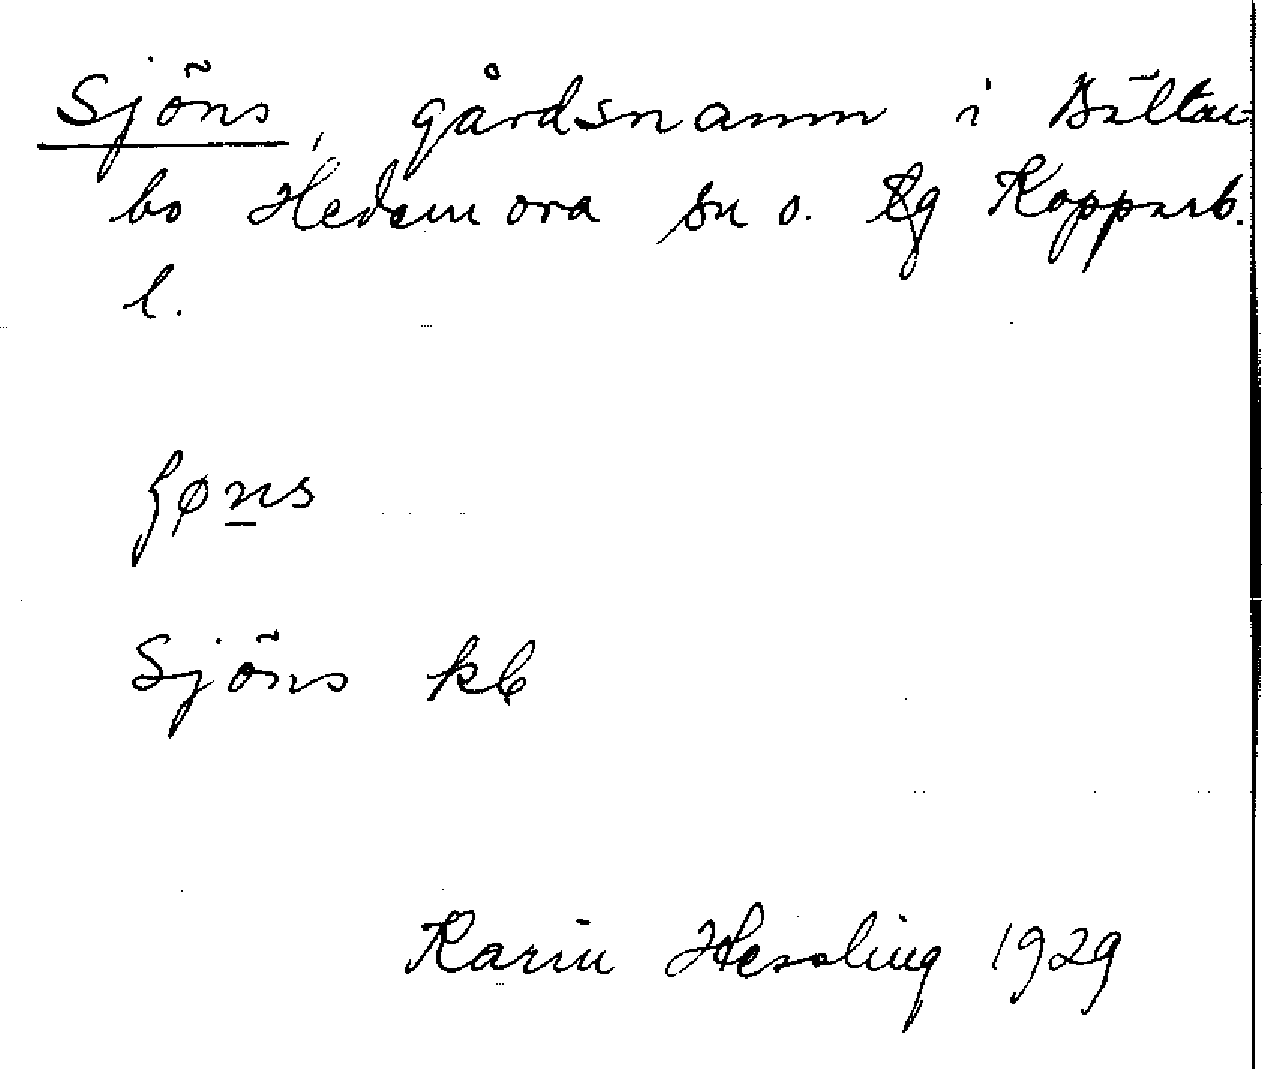 Sjöns, gårdsnamn i Bältar-
bo Hedemora sn o. tg Kopparb.
l.
ʃøns
Sjöns kb
Karin Hessling 1929